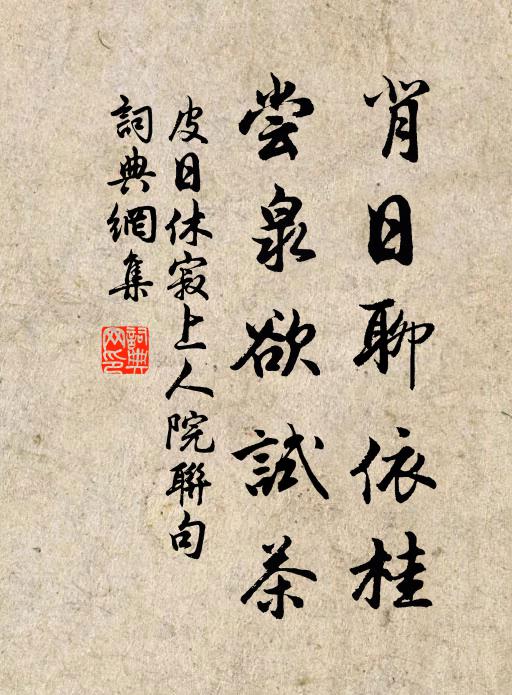 肖日聊依桂
尝泉欲試茶
皮日休寂上人院聯句
詞典網集
詞典网印